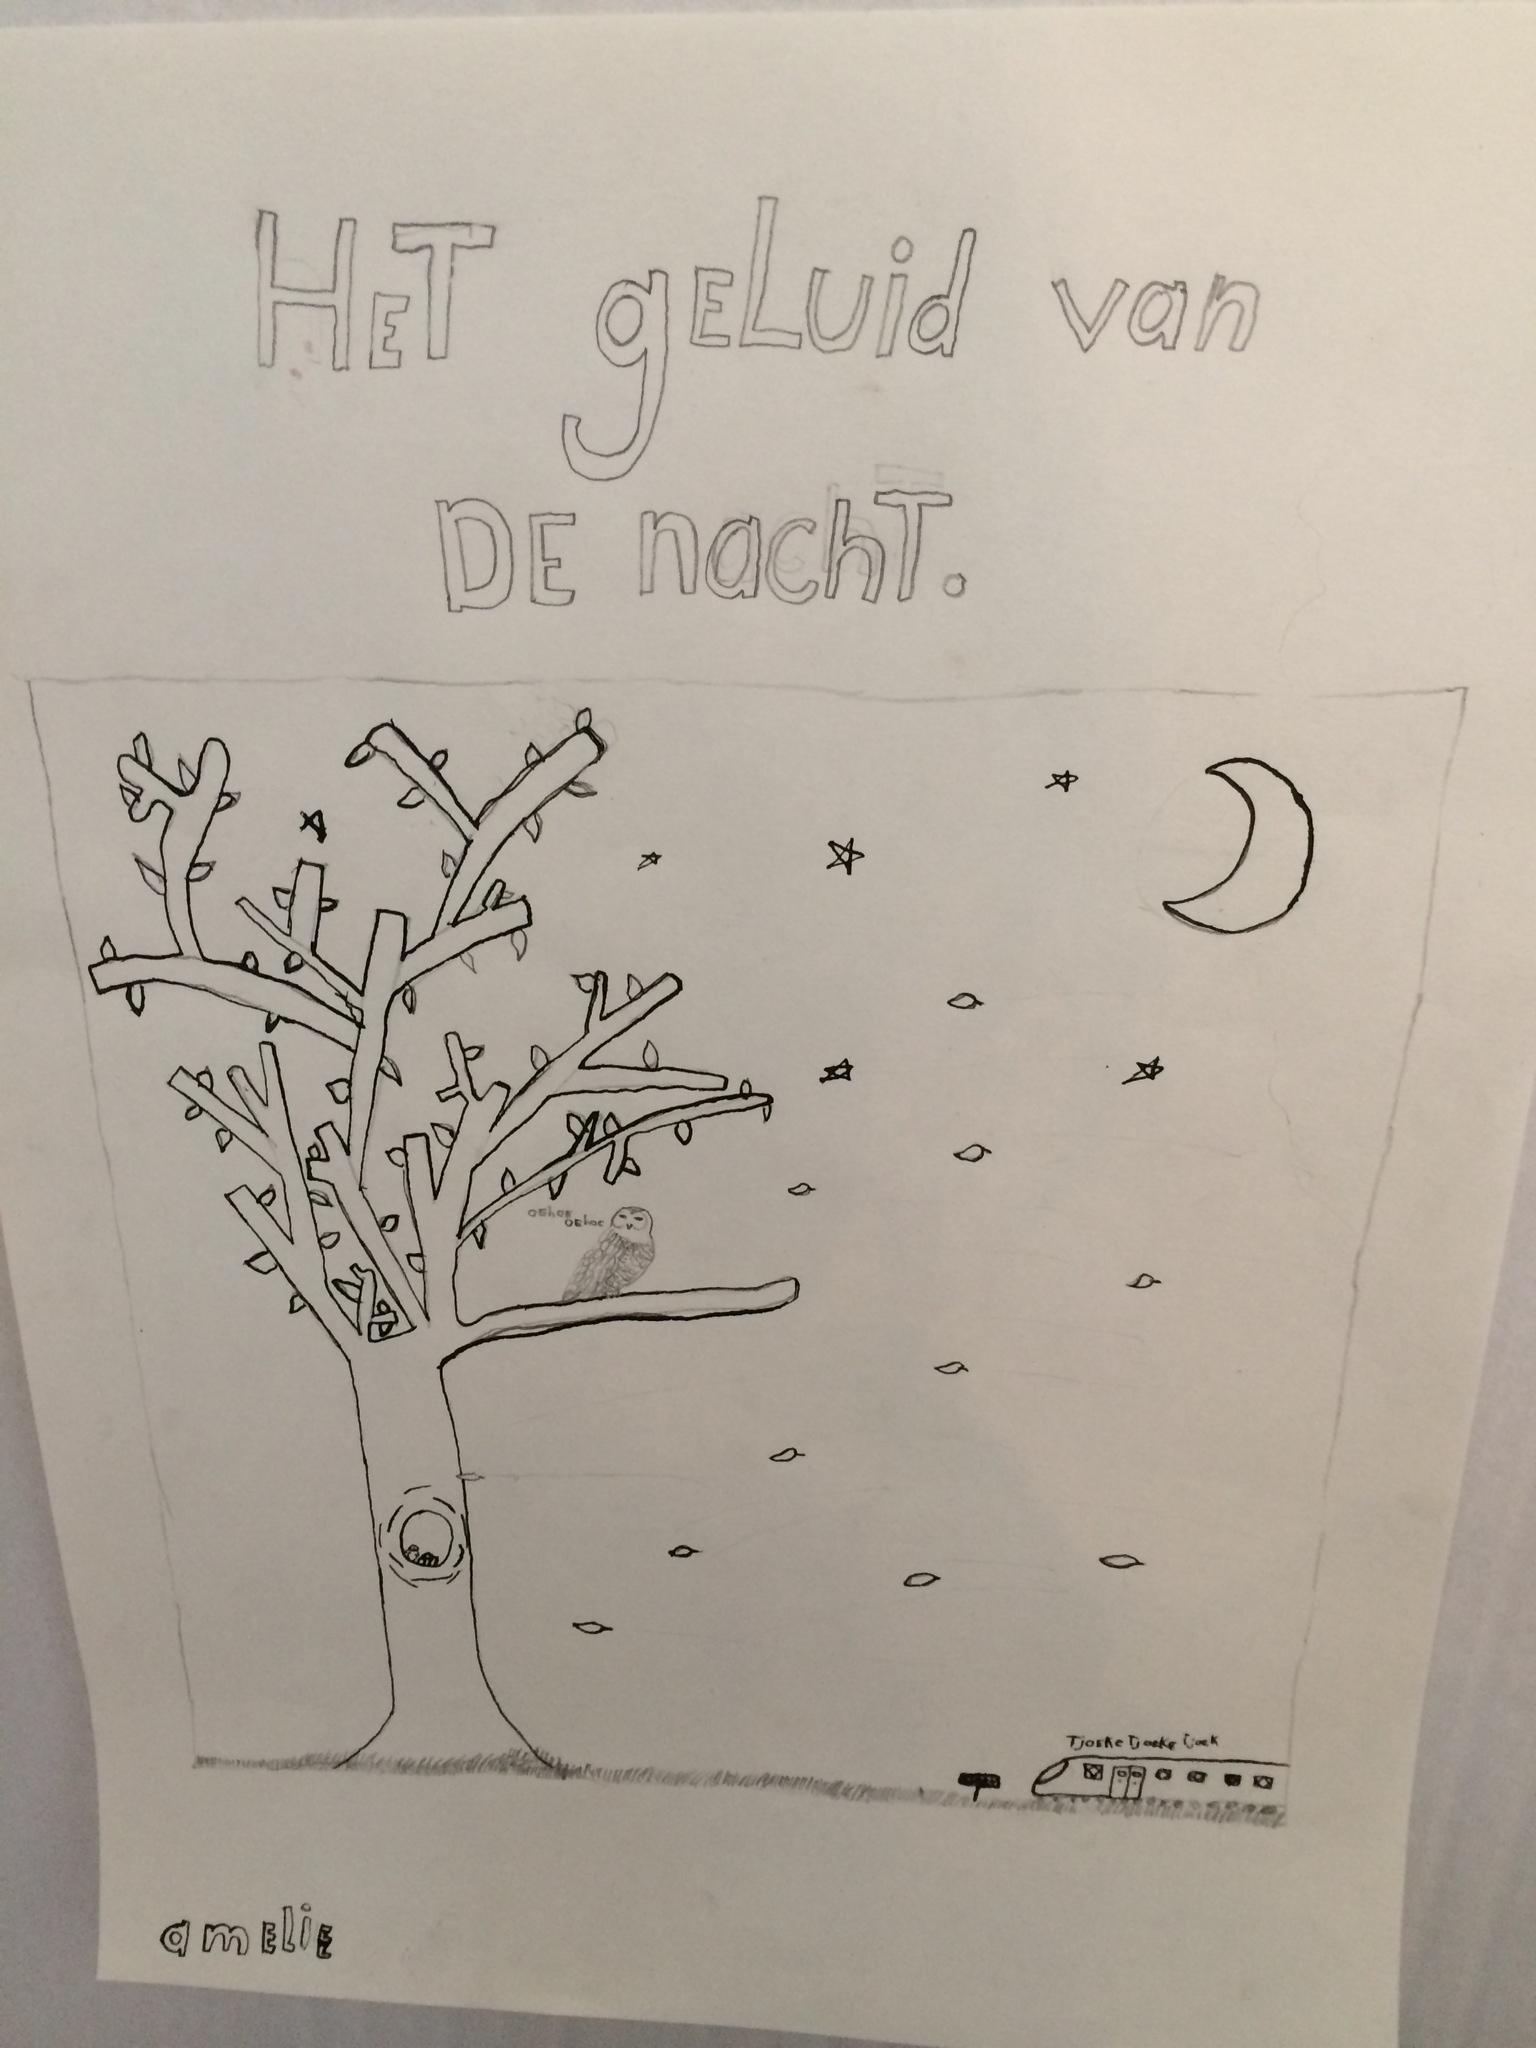 HET gELuid van
DE nachT.
OEhoE
OEhoe
TjoekeTjoeke tjoek
ameliE